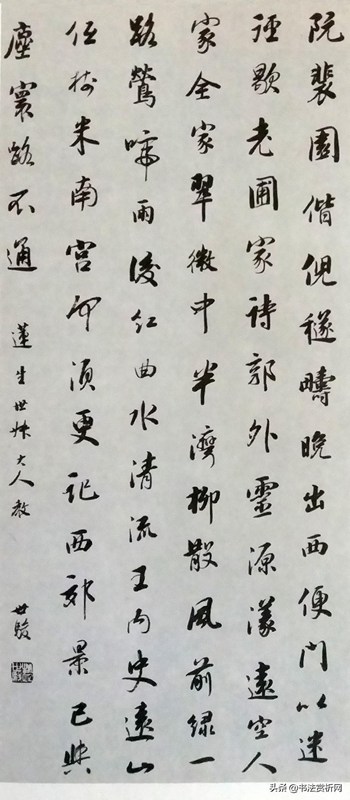 阮裴園偕倪穟疇晚出西便門以迷
徑歇老圃家詩郭外靈源漾遠空人
家全家翠微中半灣柳散風前綠一
路鶯啼雨後紅曲水清流王內史遠山
米南宮何須更記西郊景已與
塵寰路不通
蓮生世大人教
世駿
头条 @书法赏析网